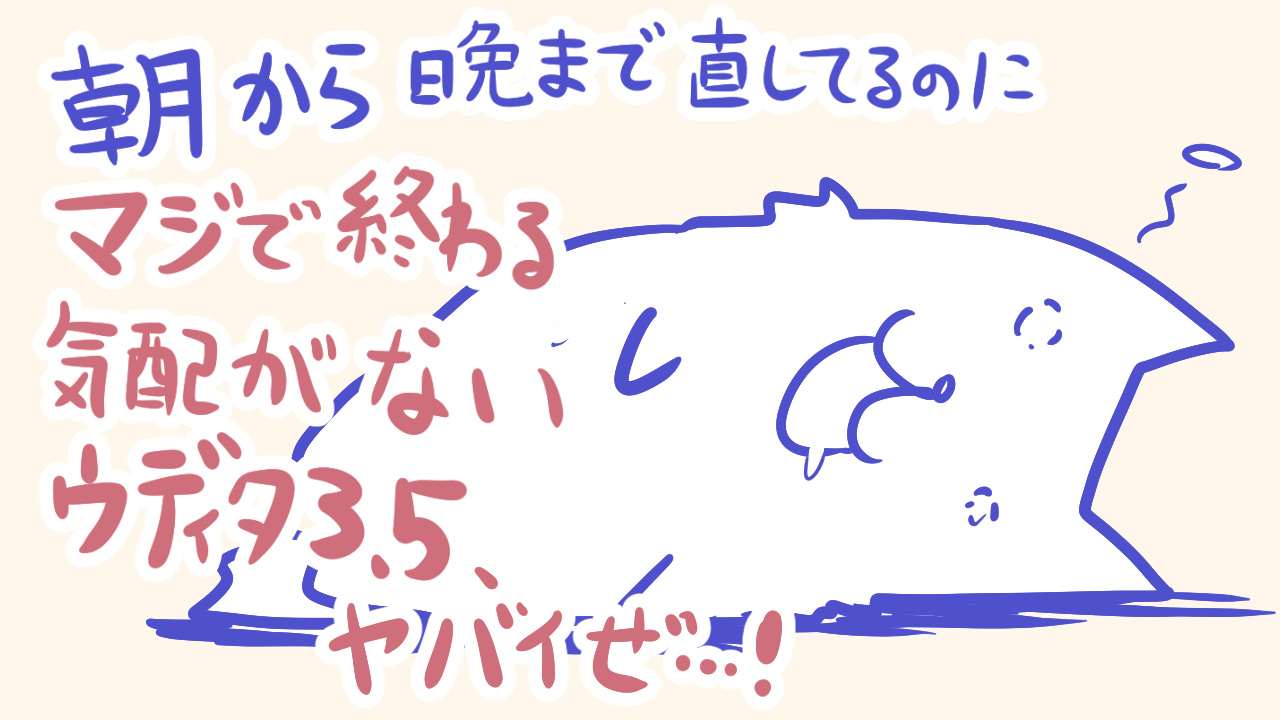 朝から晩まで直してるのに
マジで終わる
気配がない
ウディタ3.5、
ヤバイぜ…!